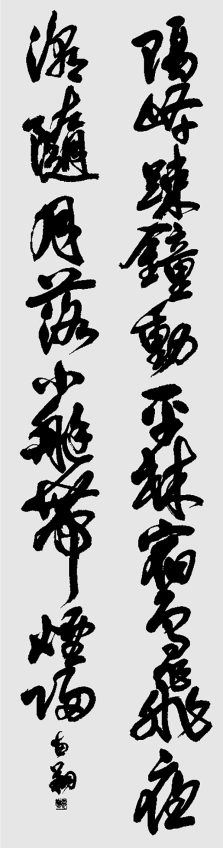 隔峰踈鐘動平林宿鳥飛夜
潮隨月落小艇帶煙歸